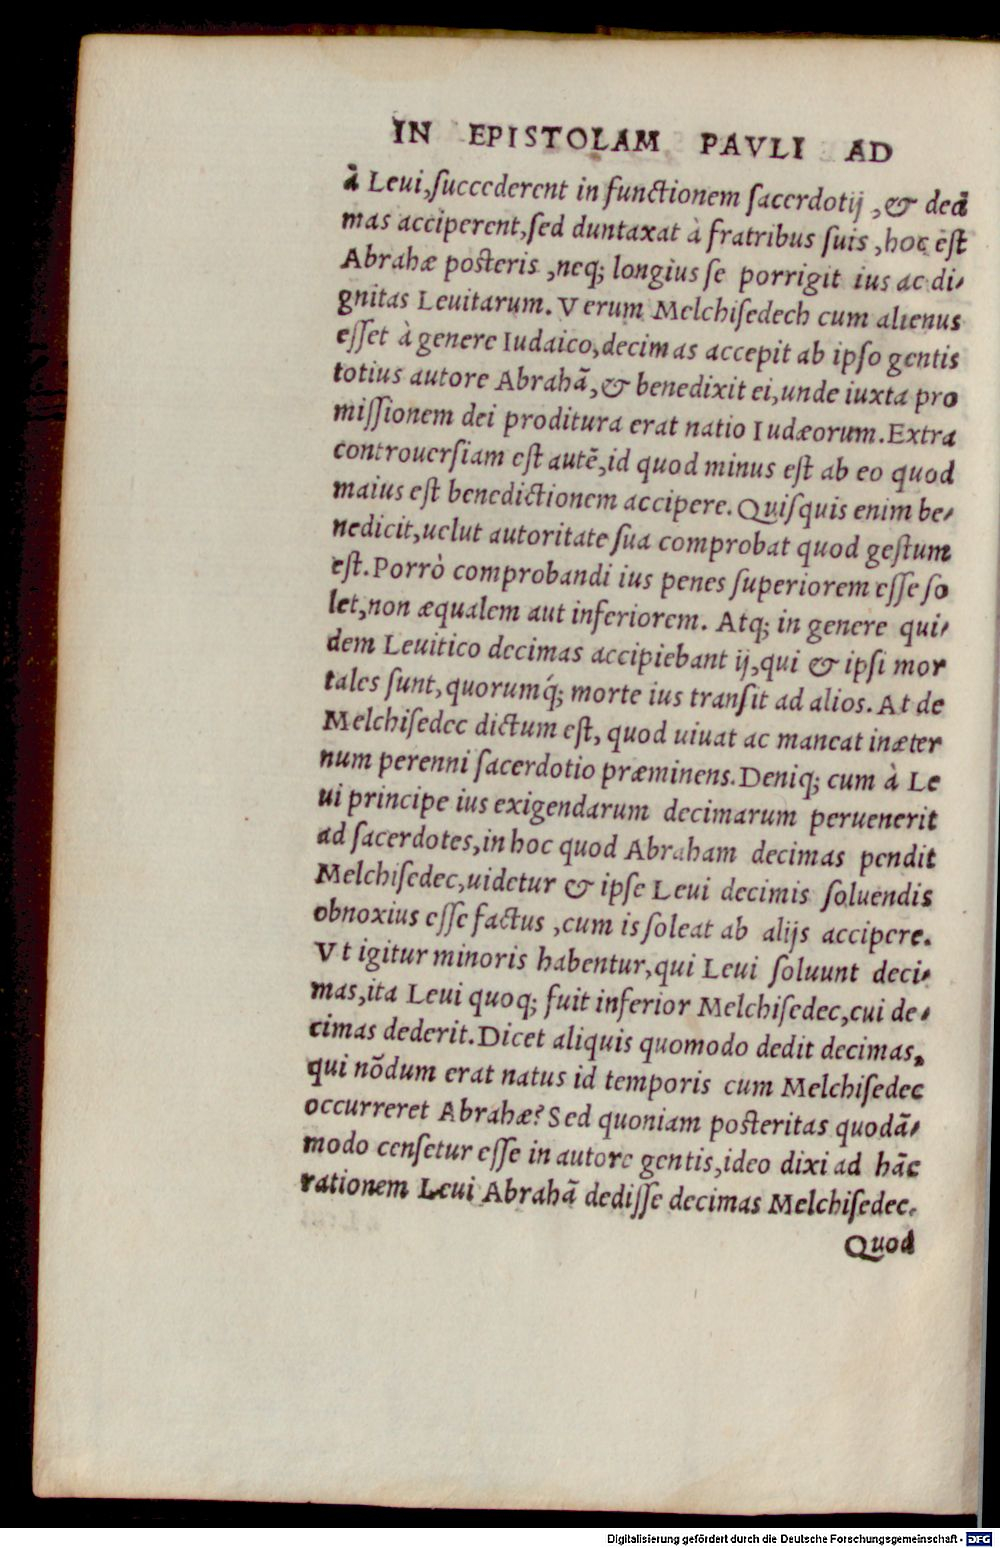 IN EPISTOLAM PAVLI AD
à Leui, ſuccederent in functionem ſacerdotij, & deci
mas acciperent, ſed duntaxat à fratribus ſuis, hoc eſt
Abrahæ poſteris, neq; longius ſe porrigit ius ac di-
gnitas Leuitarum. Verum Melchiſedech cum alienus
eſſet à genere Iudaico, decimas accepit ab ipſo gentis
totius autore Abrahā, & benedixit ei, unde iuxta pro
miſſionem dei proditura erat natio Iudæorum. Extra
controuerſiam eſt autē, id quod minus eſt ab eo quod
maius eſt benedictionem accipere. Quiſquis enim be-
nedicit, uelut autoritate ſua comprobat quod geſtum
eſt. Porrò comprobandi ius penes ſuperiorem eſſe ſo
let, non æqualem aut inferiorem. Atq; in genere qui-
dem Leuitico decimas accipiebant ij, qui & ipſi mor
tales ſunt, quorumq́; morte ius tranſit ad alios. At de
Melchiſedec dictum eſt, quod uiuat ac maneat in æter
num perenni ſacerdotio præminens. Deniq; cum à Le
ui principe ius exigendarum decimarum peruenerit
ad ſacerdotes, in hoc quod Abraham decimas pendit
Melchiſedec, uidetur & ipſe Leui decimis ſoluendis
obnoxius eſſe factus, cum is ſoleat ab alijs accipere.
Vt igitur minoris habentur, qui Leui ſoluunt deci-
mas, ita Leui quoq; fuit inferior Melchiſedec, cui de-
cimas dederit. Dicet aliquis quomodo dedit decimas,
qui nōdum erat natus id temporis cum Melchiſedec
occurreret Abrahæ? Sed quoniam poſteritas quodā-
modo cenſetur eſſe in autore gentis, ideo dixi ad hāc
rationem Leui Abrahā dediſſe decimas Melchiſedec.
Quod
Digitalisierung gefördert durch die Deutsche Forschungsgemeinschaft - DFG